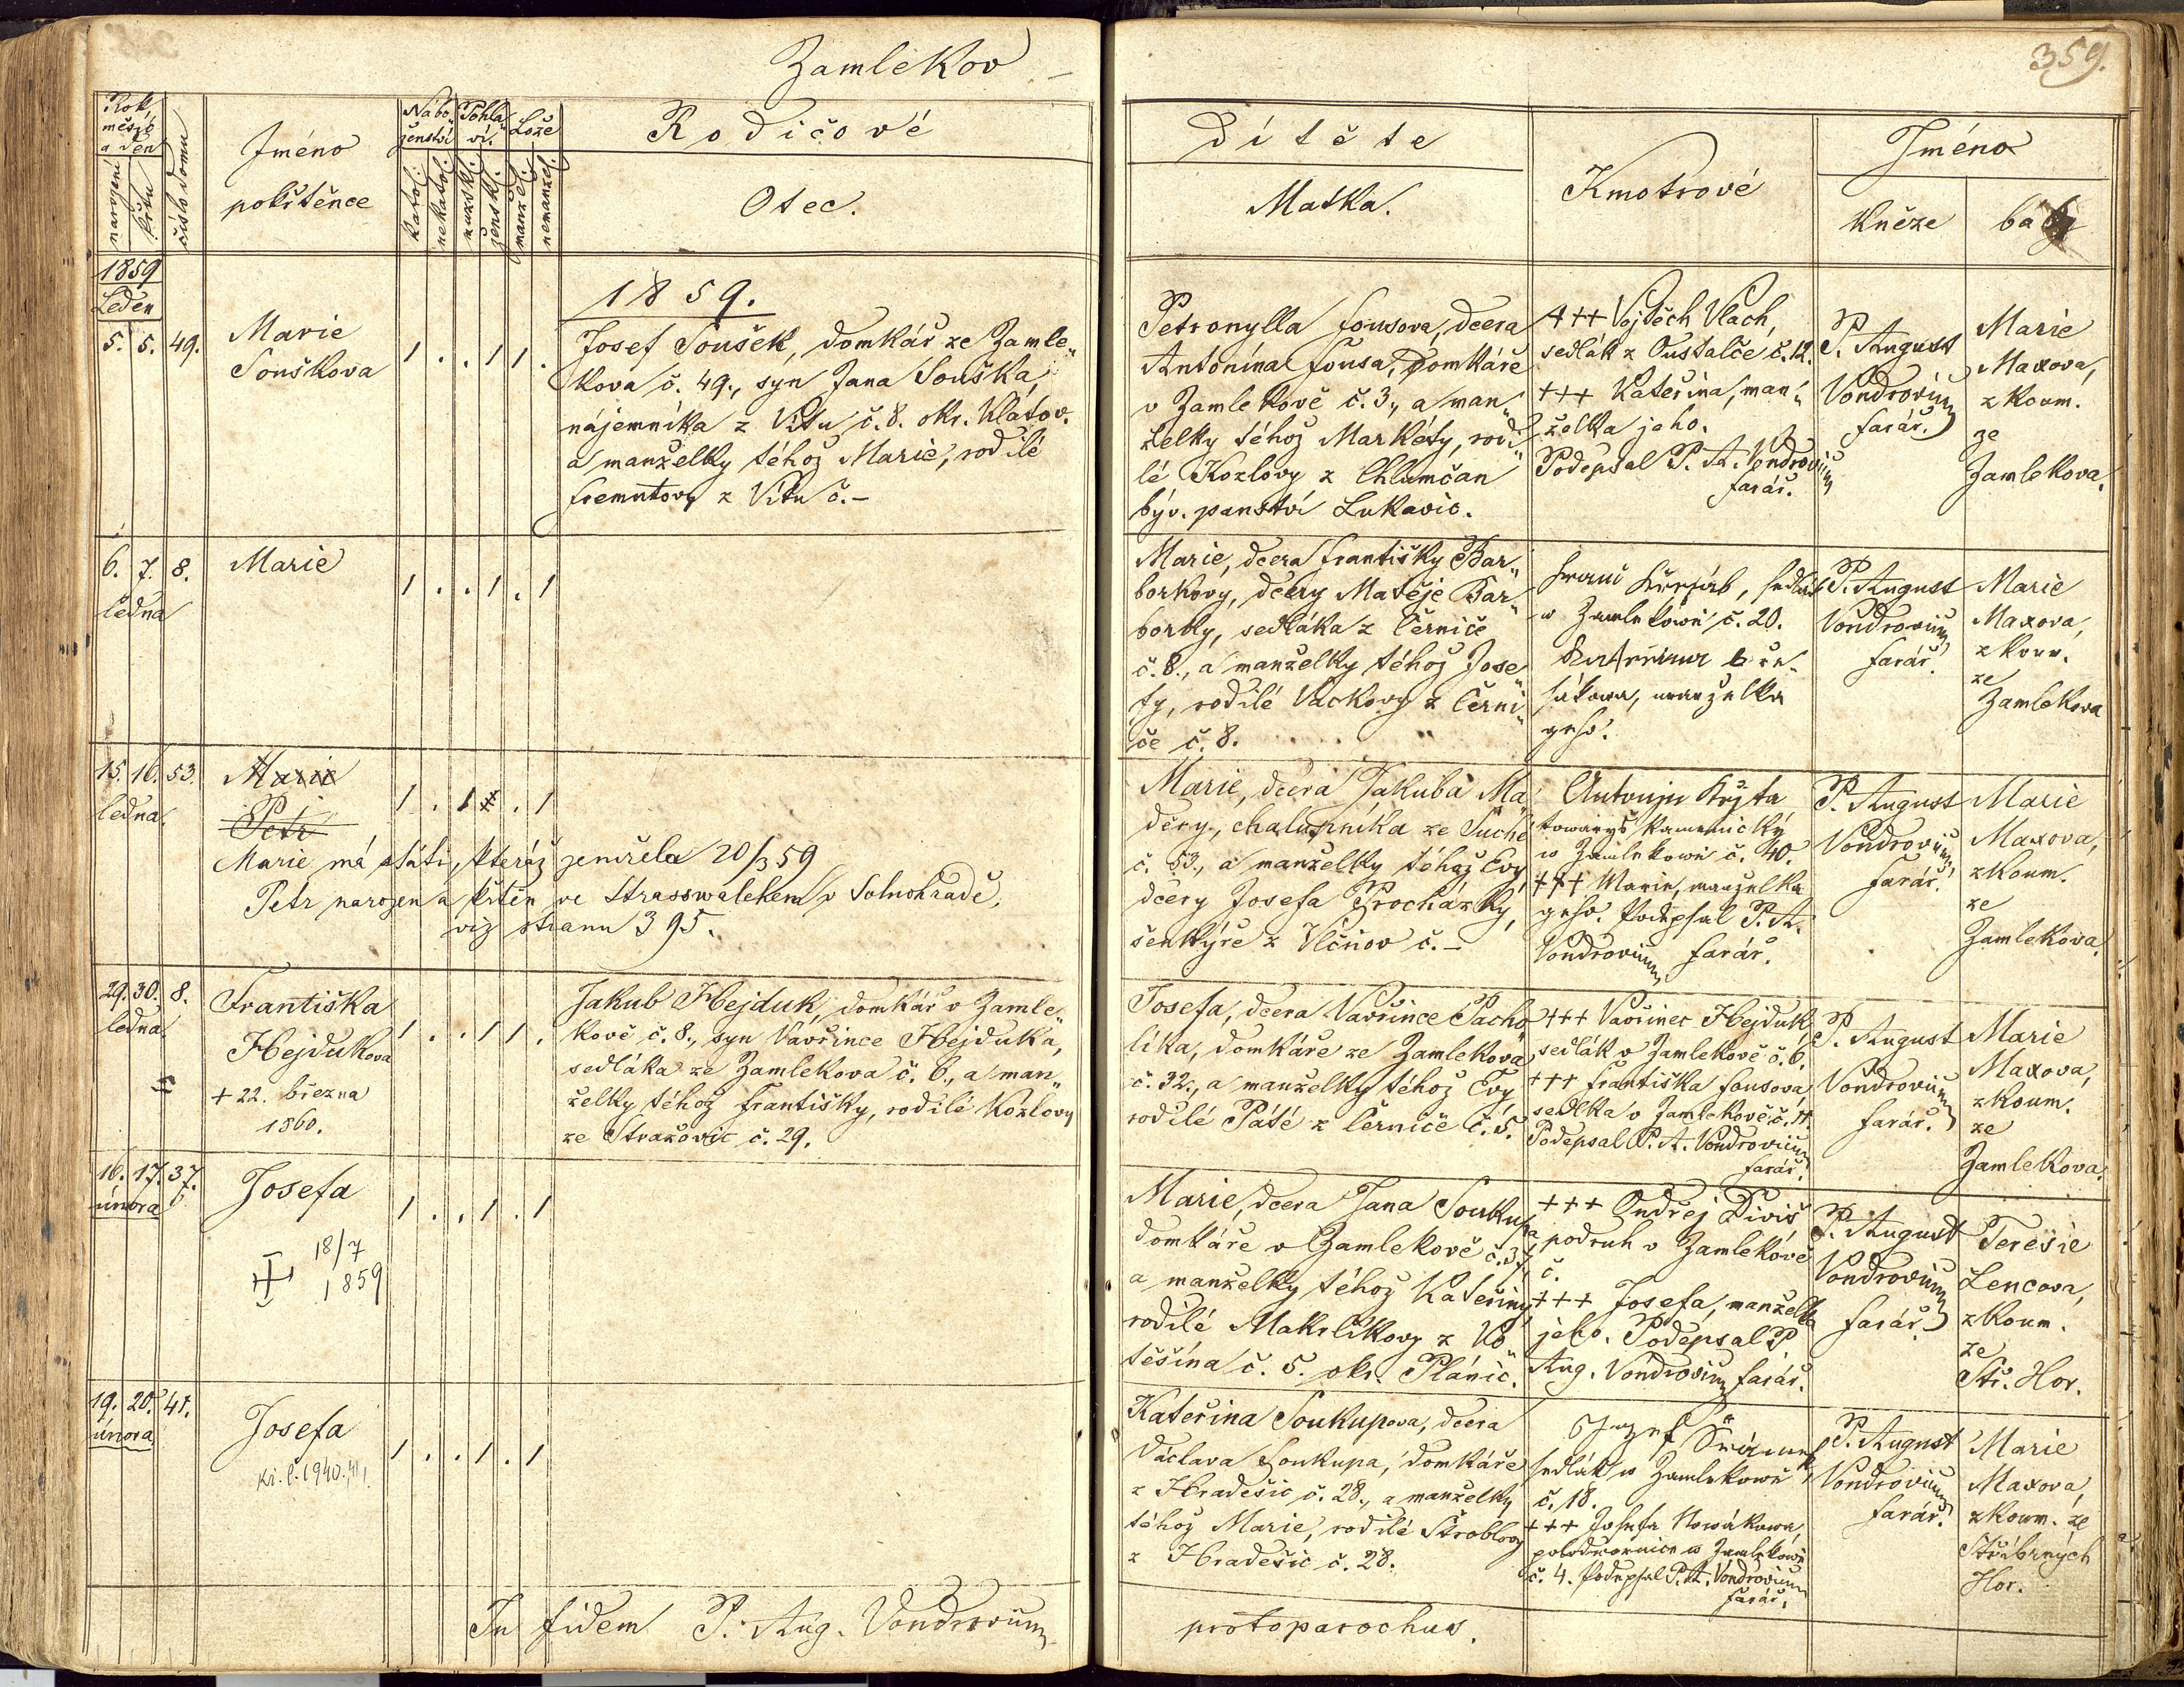 Zamlekov
359.
Rok, měsíc a den
narození
křtu
číslo domu
Jméno
pokřtěnce
Nábo„
ženství
katol.
nekatol.
Pohla„
ví.
mužsk.
žensk.
Lože
manžel.
nemanžel.
Rodičové
Otec.
Dítěte
Matka.
Kmotrové
Jméno
kněze
báby
1859
Leden
5. 5. 49.
Marie
Souškova
1 . . 1 1 .
1859.
Josef Soušek, domkář ze Zamle„
kova č. 49., syn Jana Souška,
nájemníka z Vítu č. 8. okr. Klatov.
a manželky téhož Marie, rodilé
Fremutovy z Vítu č. –
Petronylla Fousova, dcera
Antonína Fousa, domkáře
v Zamlekově č. 3., a man„
želky téhož Markéty, rodi„
lé Kozlovy z Chlumčan
býv. panství Lukavic.
+++ Vojtěch Vlach,
sedlák z Oustalče č. 12.
+++ Kateřina, man„
želka jeho.
Podepsal P. A. Vondrovium
farář.
P. August
Vondrovium
farář.
Marie
Maxova,
zkoum.
ze
Zamlekova.
6. 7. 8.
ledna
Marie
1 . . 1 . 1
Marie, dcera Františky Bar„
borkovy, dcery Matěje Bar„
borky, sedláka z Černíče
č. 8., a manželky téhož Jose„
fy, rodilé Vackovy z Černí„
če č. 8.
w Zamlekowě č. 20.
manželka
geho.
P. August
Vondrovium
farář.
Marie
Maxova,
zkoum.
ze
Zamlekova
15. 16. 53.
ledna.
Marie
Petr
1 . 1 . 1
Marie má státi, kteráž zemřela 20/3 59
Petr narozen a křtěn ve Strasswalchen v Solnohradě,
viz stranu 395.
Marie, dcera Jakuba Ma„
děry, chalupníka ze Suché
č. 53., a manželky téhož Evy,
dcery Josefa Procházky,
šenkýře z Vlčnov č. –
towaryš kamenický
w Zamlekowě č. 40.
+++ Marie, manželka
geho. Podepsal P. A.
Vondrovium farář.
P. August
Vondrovium
farář.
Marie
Maxova,
zkoum.
ze
Zamlekova.
29. 30. 8.
ledna
Františka
Hejdukova
+ 22. března
1860.
1 . . 1 1 .
Jakub Hejduk, domkář v Zamle„
kově č. 8., syn Vavřince Hejduka,
sedláka ze Zamlekova č. 6., a man„
želky téhož Františky, rodilé Kozlovy
ze Stražovic č. 29.
Josefa, dcera Vavřince Pacho„
líka, domkáře ze Zamlekova
č. 32., a manželky téhož Evy
rodilé Páté z Černíče č. 5.
+++ Vavřinec Hejduk,
sedlák v Zamlekově č. 6.
+++ Františka Fousova,
sedlka v Zamlekově č. 11.
Podepsal P. A. Vondrovium
farář.
P. August
Vondrovium
farář.
Marie
Maxova,
zkoum.
ze
Zamlekova.
16. 17. 37.
února
Josefa
18/7
1859
1 . . 1 . 1
Marie, dcera Jana Soukupa
domkáře v Zamlekově č. 37,
a manželky téhož Kateřiny,
rodilé Makrlíkovy z Ko„
těšína č. 5. okr. Plánic.
+++ Ondřej Diviš,
podruh v Zamlekově
č.
+++ Josefa, manželka
jeho. Podepsal P.
Aug. Vondrovium farář.
P. August
Vondrovium
farář.
Teresie
Lencova,
zkoum.
ze
Stř. Hor.
19. 20. 41.
února
Josefa
kř. l. 1940.
1 . . 1 . 1
Kateřina Soukupova, dcera
Václava Soukupa, domkáře
z Hradešic č. 28., a manželky
téhož Marie, rodilé Stroblovy
z Hradešic č. 28.
Jozef Šrámek,
sedlák w Zamlekowě
č. 18.
+++ Josefa Nowákowa,
polodwornice w Zamlekowě
č. 4. Podepsal P. A. Vondrovium
farář.
P. August
Vondrovium
farář.
Marie
Maxova,
zkoum. ze
Stříbrných
Hor.
In fidem P. Aug. Vondrovium
protoparochus.